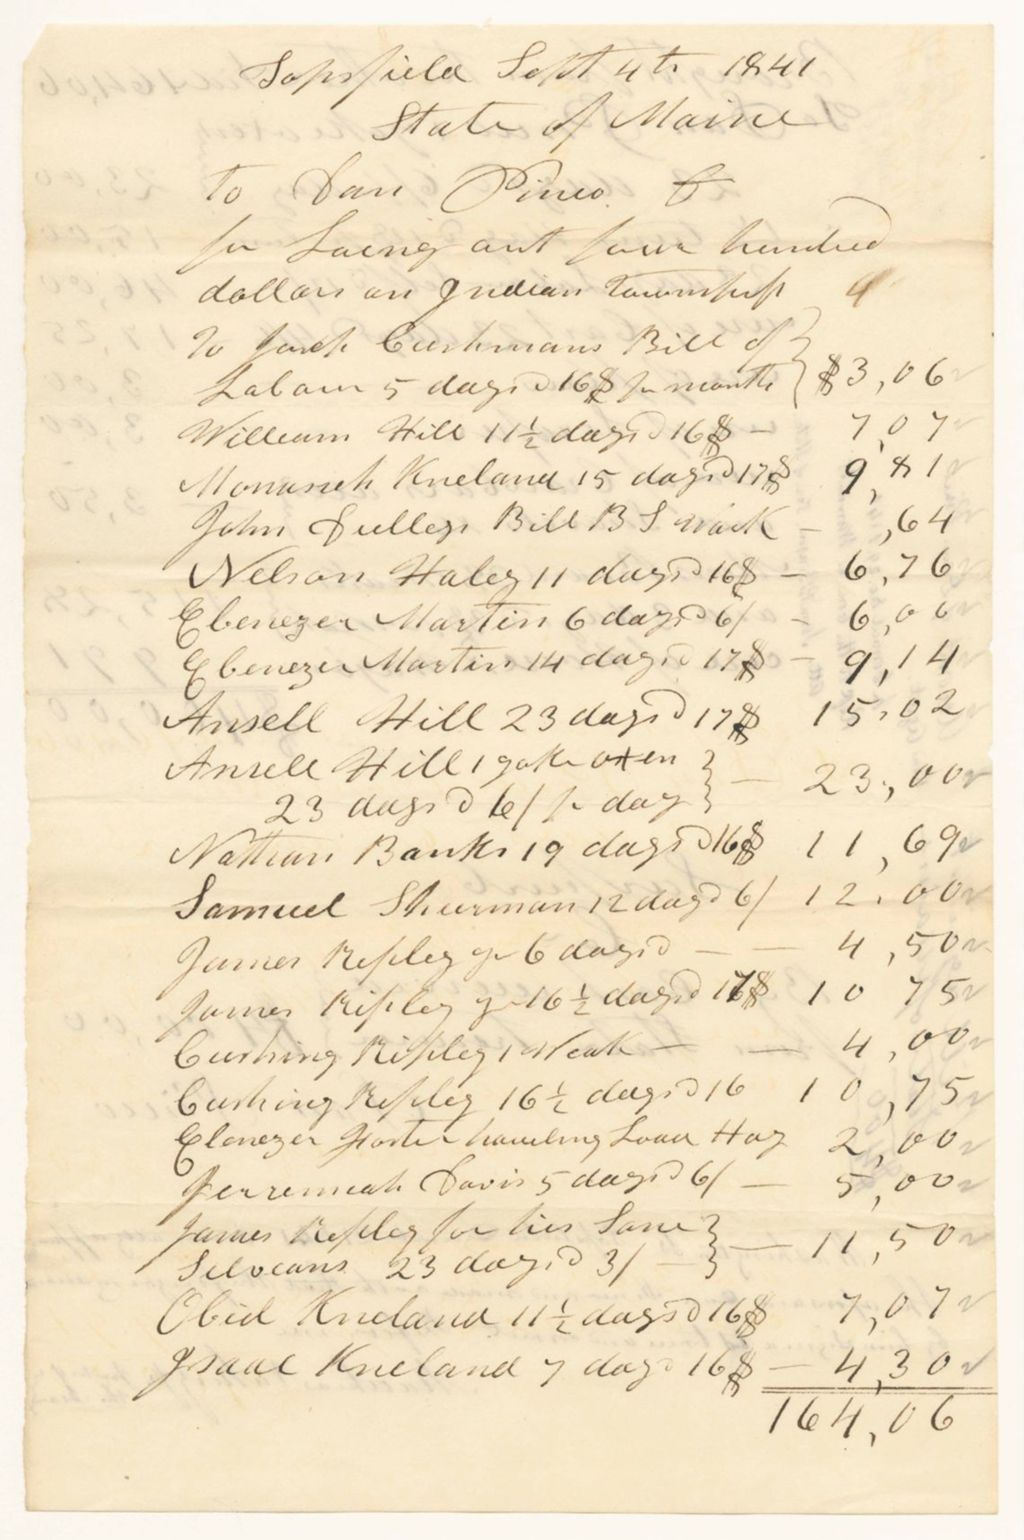 Topsfield Sept 4th 1841
State of Maine
to Dan Pineo Dr
for Laing out four hundred
dollars on Indian Township
To Joseph Cushmans Bill of
Labour 5 days @ 16$ pr month $3,06
William Hill 11½ days @ 16$ - 7,07
Monasseh Kneland 15 days @ 17$ 9,81
John Dudleys Bill B S Work - ,64
Nelson Haley 11 days @ 16$ - 6,76
Ebenezer Martin 6 days @ 6/ - 6,00
Ebenezer Martin 14 days @ 17$ - 9,14
Ansell Hill 23 days @ 17$ 15.02
Ansell Hill 1 yoke oxen
23 days @ 6/ pr day - 23,00
Nathan Banks 19 days @ 16$ 11,69
Samuel Shurman 12 days @ 6/ 12.00
James Ripley jr 6 days @ - - 4,50
James Ripley jr 16½ days @ 17$ 10 75
Cushing Ripley 1 Weak - - 4,00
Cushing Ripley 16½ days @ 16 10,75
Ebenezer Foster hauling Load Hay 2,00
Jerremiah Davis 5 days @ 6/ - 5,00
James Ripley for his Sone
Selveans 23 days @ 3/ - - 11,50
Obid Kneland 11½ days @ 16$ 7,07
Isaac Kneland 7 days 16$ - 4,30
164,06